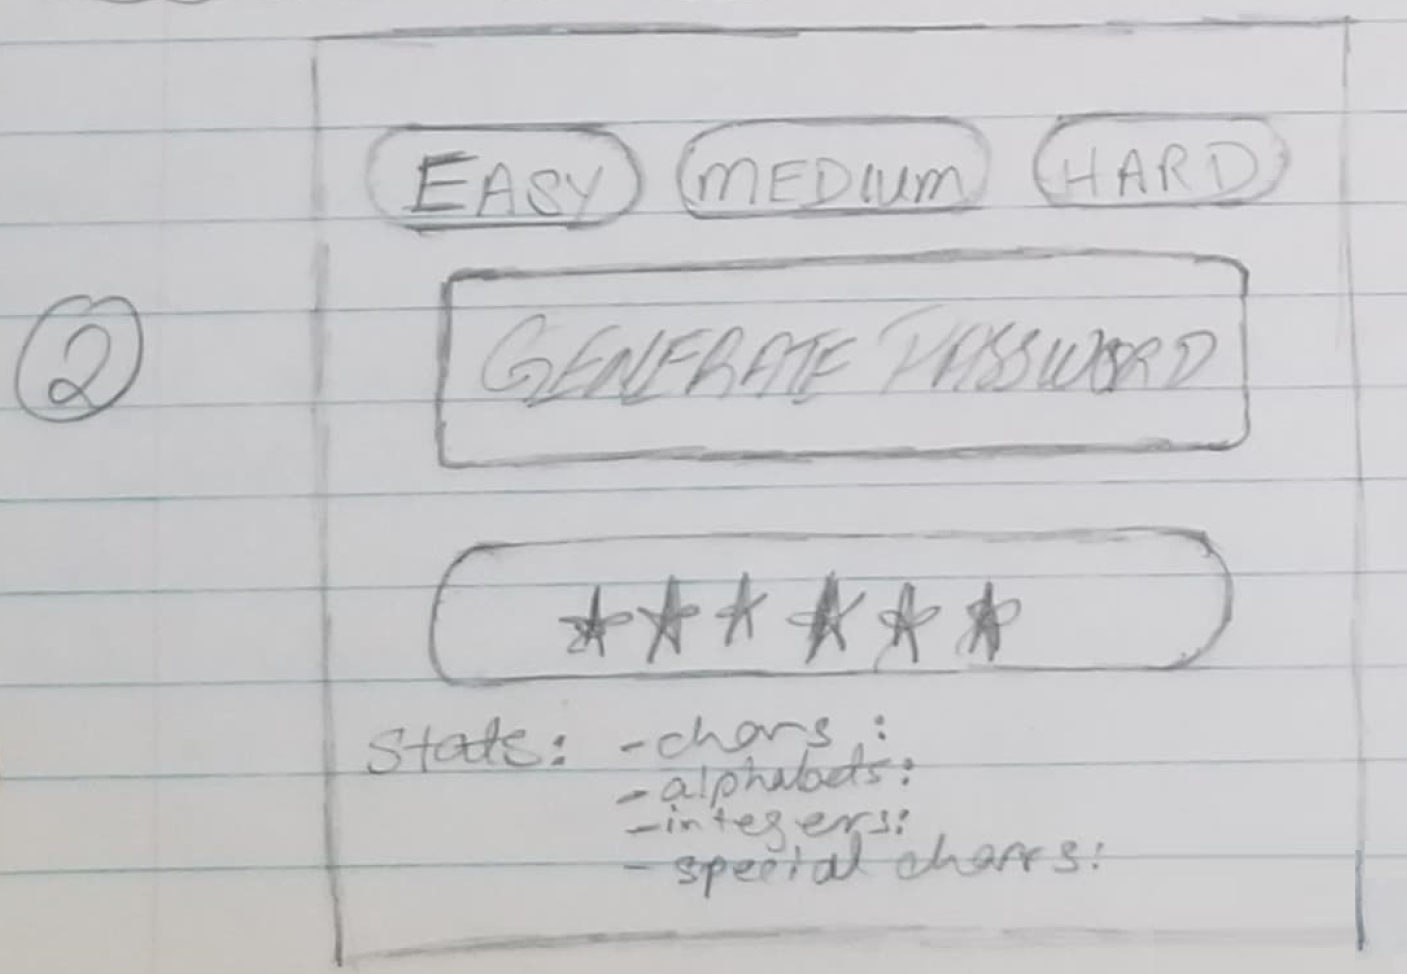 EASY MEDIUM HARD
② GENERATE PASSWORD
******
Stats: - chars :
- alphabets:
- integers:
- special chars: